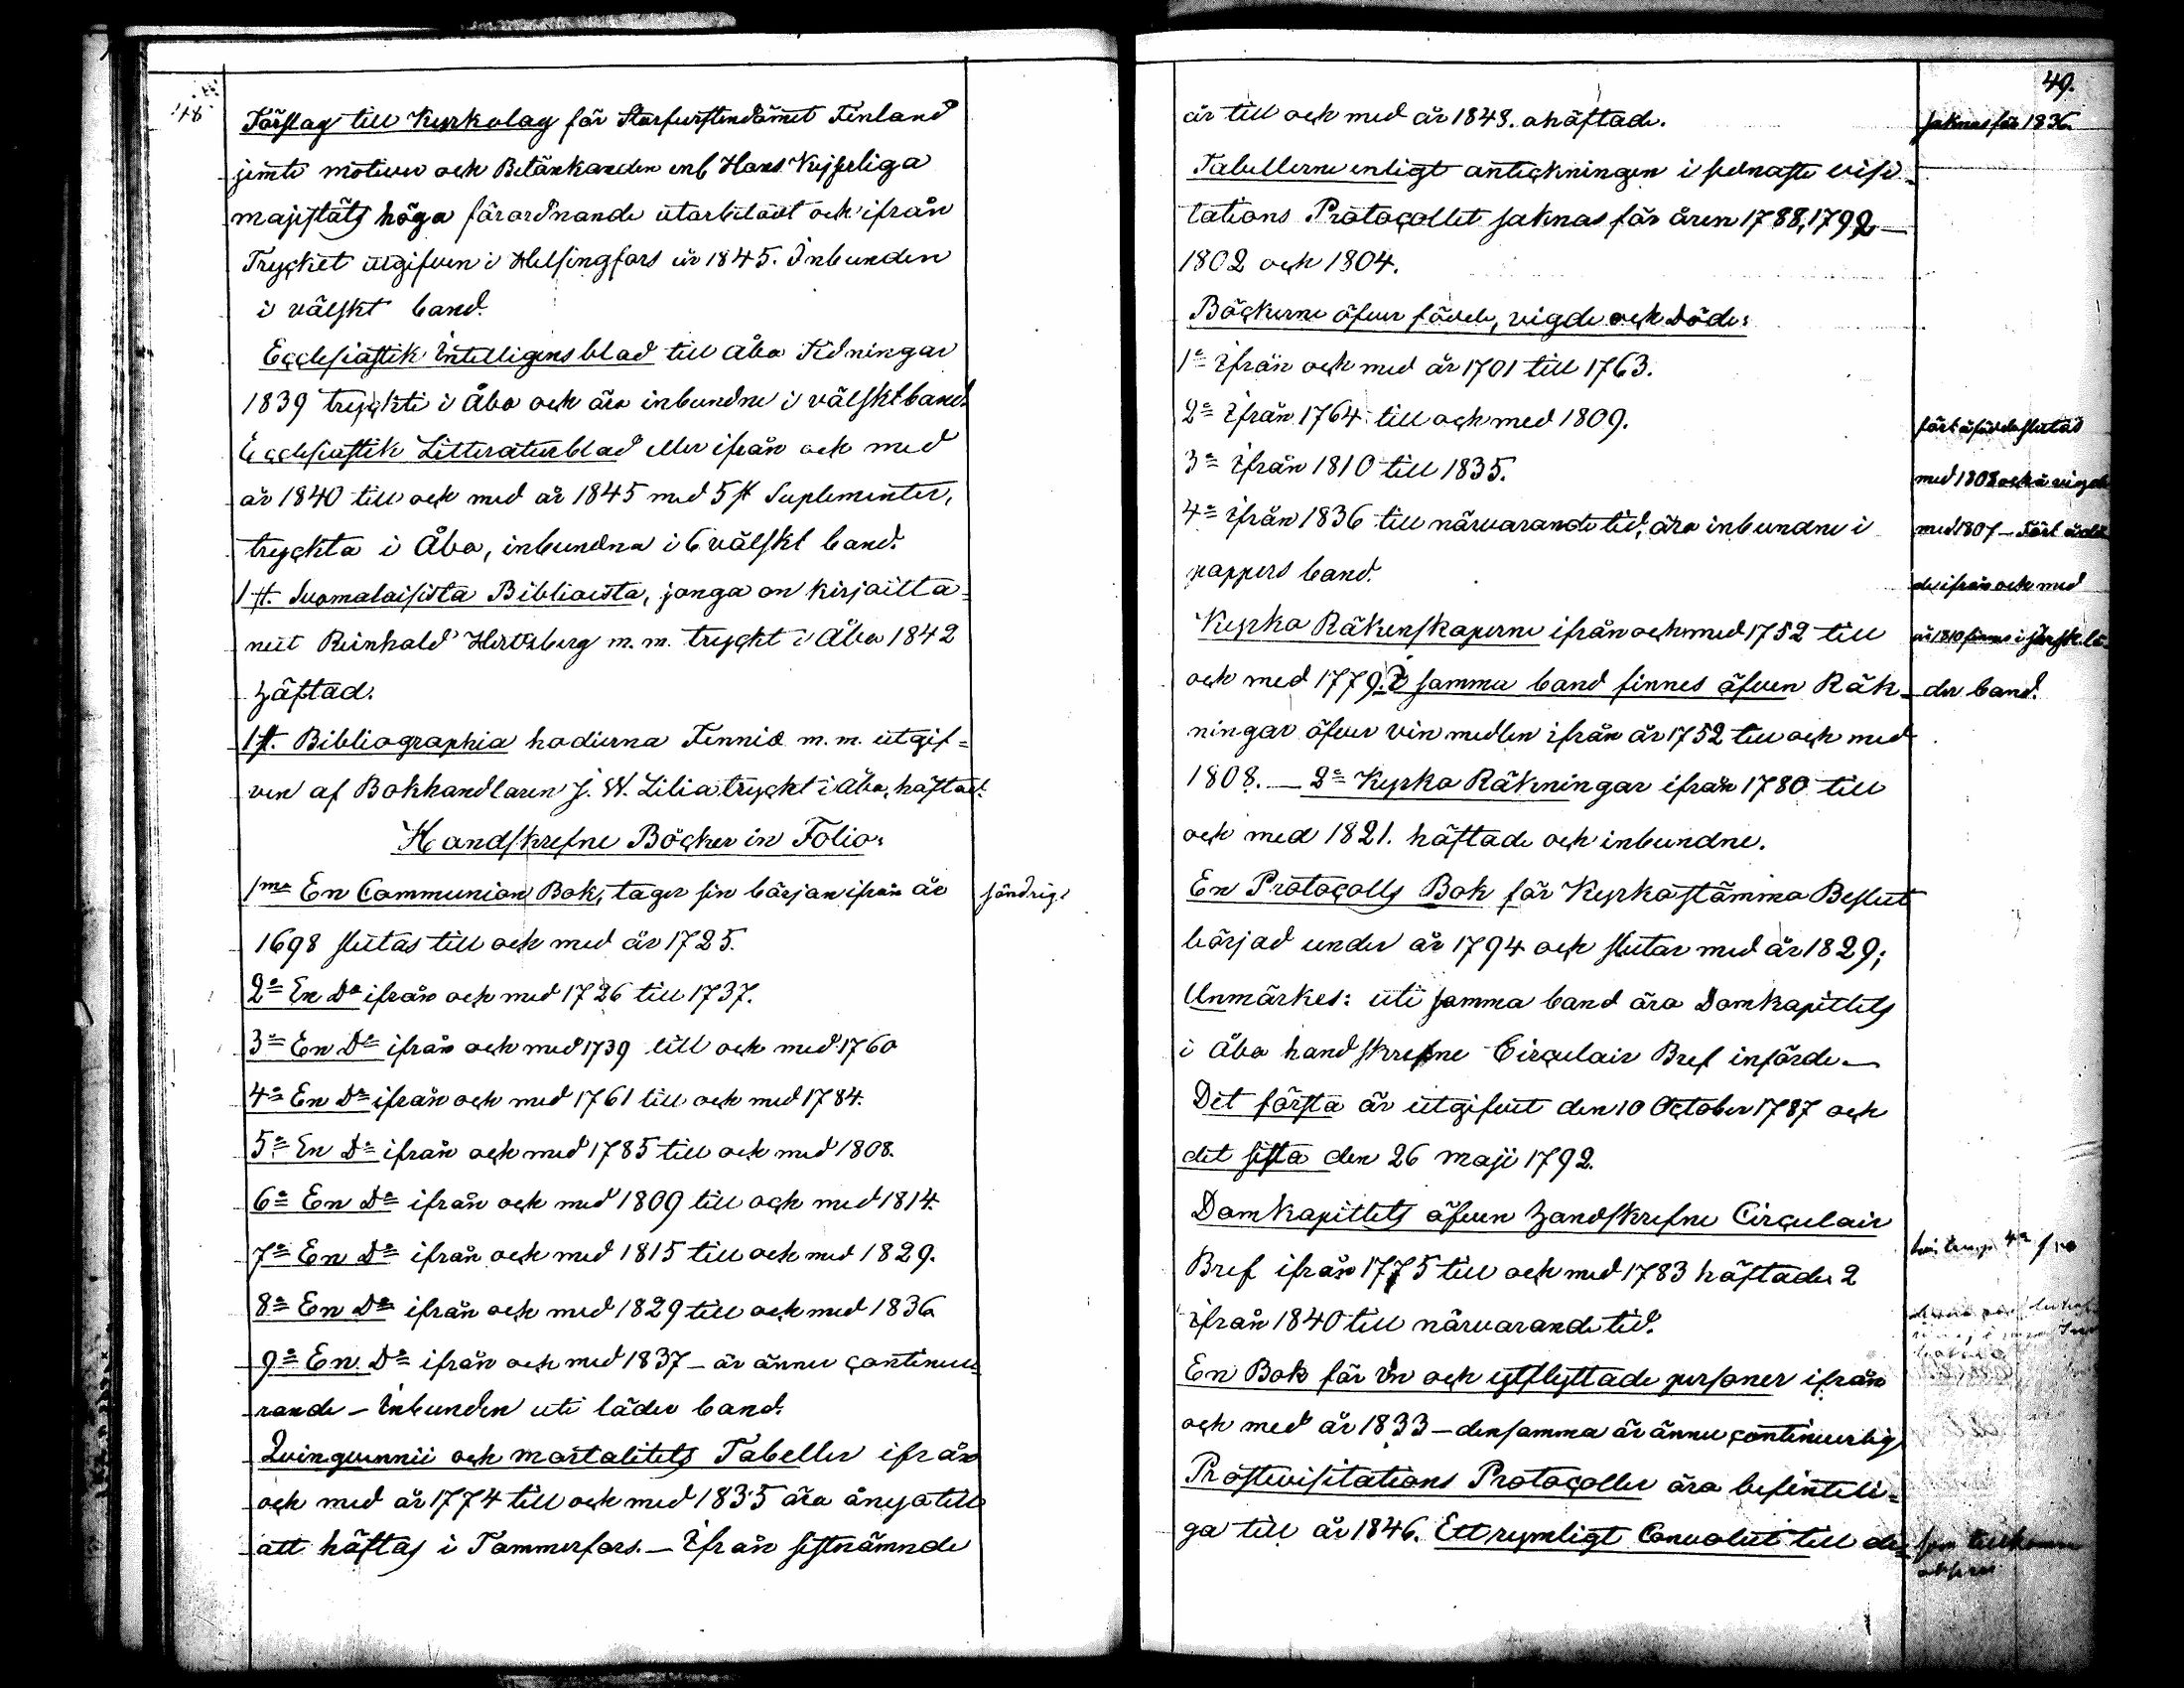 48
Förslag till Kyrkolag för Storfurstendömet Finland
jemte motiver och Betänkanden enl Hans Kejserliga
majestäts höga förordnande utarbetadt och ifrån
Trycket utgifven i Helsingfors år 1845. Inbunden
i välskt band.
Ecclesiastik Intelligensblad till Åbo Tidningar
1839 tryckte i Åbo och äro inbundne i välsktband.
Ecclesiastik Litteraturblad eller ifrån och med
år 1840 till och med år 1845 med 5 st Suplementer,
tryckta i Åbo, inbundna i 6 välskt band.
1 st. Suomalaisista Biblioista, jonga on kirjoitta-
nut Reinhold Hertzberg m. m. tryckt i Åbo 1842
häftad.
1 st. Bibliographia hodierna Fennia m. m. utgif=
ven af Bokhandlaren J. W. Lilia tryckt i Åbo, häftad.
Handskrefne Böcker in Folio:
1mo En Communion Bok, tager sin börjon ifrån år
söndrig.
1698 slutas till och med år 1725.
2o En Do ifrån och med 1726 till 1737.
3o En Do ifrån och med 1739 till och med 1760
4o En Do ifrån och med 1761 till och med 1784.
5o En Do ifrån och med 1785 till och med 1808.
6o En Do ifrån och med 1809 till och med 1814.
7o En Do ifrån och med 1815 till och med 1829.
8o En Do ifrån och med 1829 till och med 1836
9o En Do ifrån och med 1837 – är ännu continue-
rande – Inbunden uti läder band.
Quinquennii och mortalitets Tabeller ifrån
och med år 1774 till och med 1835 äro ånyo till
att häftas i Tammerfors. – Ifrån sistnämnde
49.
år till och med år 1848. ohäftade.
saknas för 1836.
Tabellerne enligt anteckningen i senaste visi-
tations Protocollet saknas för åren 1788, 1792 –
1802 och 1804.
Böckerne öfver födde, vigde och Döde:
1o Ifrån och med år 1701 till 1763.
2o Ifrån 1764 till och med 1809.
3o Ifrån 1810 till 1835.
med 1808 och å vigde
4o Ifrån 1836 till närvarande tid, äro inbundne i
med 1807 –
pappers band.
de ifrån och med
Kyrko Räkenskaperne ifrån och med 1752 till
år 1810 finnes i särsk. lä-
och med 1779. I samma band finnes äfven Räk-
der band.
ningar öfver vin medlen ifrån år 1752 till och med
1808. – 2o Kyrko Räkningar ifrån 1780 till
och med 1821. häftade och inbundne.
En Protocolls Bok för Kyrkostämmo Beslut
börjad under år 1794 och slutar med år 1829;
Anmärkes: uti samma band äro Domkapitlets
i Åbo handskrefne Circulair Bref införde. –
Det första är utgifvet den 10 October 1787 och
det sista den 26 maji 1792.
Domkapitlets äfven handskrefne Circulair
Bref ifrån 1775 till och med 1783 häftade 2
Ifrån 1840 till närvarande tid.
En Bok för in och utflyttade personer ifrån
och med år 1833 – densamma är ännu continuerlig
Prostevisitations Protocoller äro befintli=
ga till år 1846. Ett rymligt Convolut till de=
som tillkomm